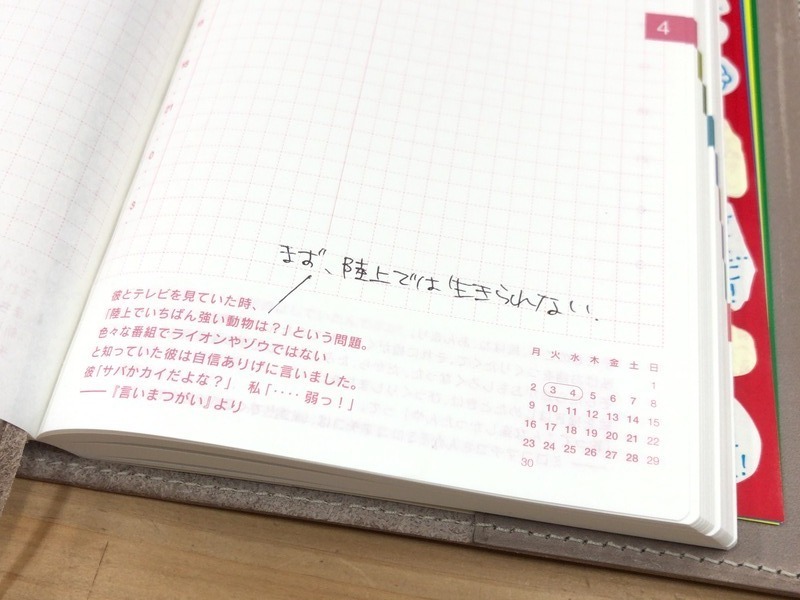 4
まず、陸上では生きられない.
彼とテレビを見ていた時、
「陸上でいちばん強い動物は？」という問題。
色々な番組でライオンやゾウではない
と知っていた彼は自信ありげに言いました。
彼「サバかカイだよな？」 私「‥‥弱っ！」
——『言いまつがい』より
月 火 水 木 金 土 日
1
2 3 4 5 6 7 8
9 10 11 12 13 14 15
16 17 18 19 20 21 22
23 24 25 26 27 28 29
30